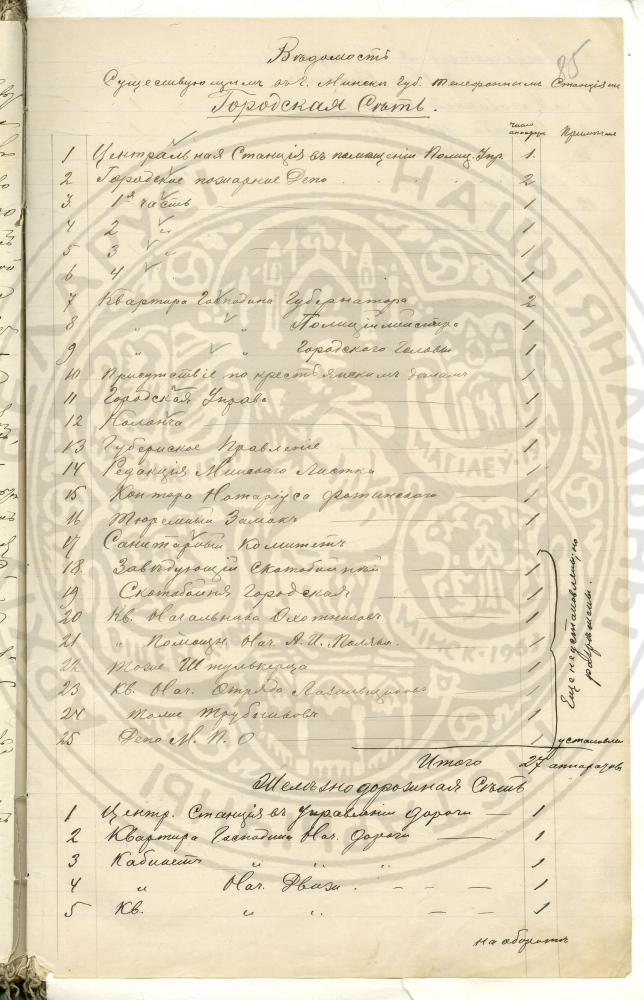 85
Вѣдомость
Существующимъ въ г. Минскѣ Губ. Телефоннымъ Станціямъ
Городская Сѣть.
число аппарат. Примѣчаніе
1 Центральная Станція въ помѣщеніи Полиц. Упр. 1.
2 Городское пожарное Депо 2
3. 1я часть 1
4 2 " 1
5 3 " 1
6 4 1
7 Квартира Господина Губернатора 2
8 " " Полиціймейстера 1
9 " " Городского Головы 1
10 Присутствіе по крестьянскимъ дѣламъ 1
11 Городская Управа 1
12 Каланча 1
13 Губернское Правленіе 1
14 Редакція Минскаго Листка 1
15 Контора Нотаріуса Фотинского 1
16 Тюремный Замокъ 1
17 Санитарный Комитетъ
18. Завѣдующій Скотобойней 1
19 Скотобойня Городская 1
20 Кв. Начальника Охотниковъ 1
21 " Помощн. Нач. А. И. 1
22 Тоже 1
23 Кв. Нач. Отряда Лазильщиковъ 1
24 Тоже Трубниковъ 1
25 Депо М. П. О 1
Еще не установлены, но разрѣшены.
установлен
Итого 27 аппаратовъ
Желѣзнодорожная Сѣть
1 Центр. Станція въ Управленіи дороги 1
2 Квартира Господина Нач. Дороги 1
3 Кабинетъ " " " 1
4 " Нач. Движ. 1
5 Кв. " " 1
на оборотѣ